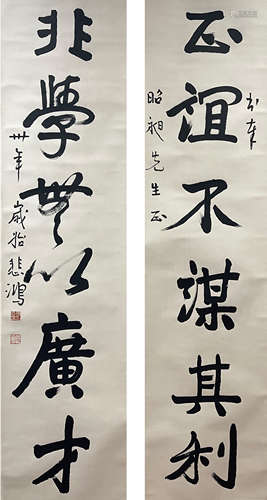 書奉
正誼不謀其利
昭昶先生正
非學無以廣才
卅年歲始悲鴻